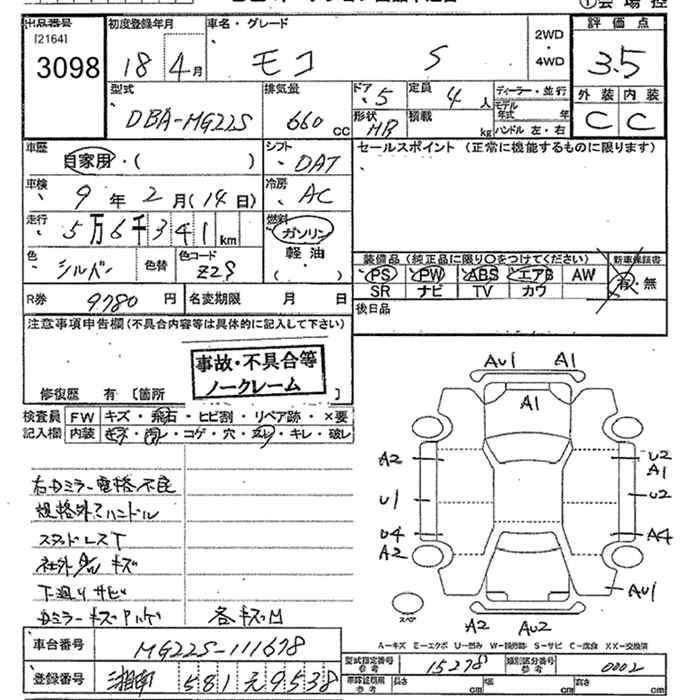 出品番号
[2164]
3098
初度登録年月
18 4月
車名・グレード
モコ S
2WD
・
4WD
評価点
3.5
外装 内装
C C
型式
DBA-MG22S
排気量
660 cc
ドア 5
形状 HB
定員 4 人
積載 kg
ディーラー・並行
モデル年式 年
ハンドル 左・右
車歴
自家用・( )
シフト
DAT
セールスポイント (正常に機能するものに限ります)
車検
9年2月(14日)
冷房
AC
走行
5万6千341km
燃料
ガソリン
軽油
( )
色
シルバー
色替
色コード
Z2S
装備品(純正品に限り○をつけてください)
PS PW ABS エアB AW
SR ナビ TV カワ
新車保証書
有・無
R券 9780円
名変期限 月 日
後日品
注意事項申告欄(不具合内容等は具体的に記入して下さい)
事故・不具合等
ノークレーム
修復歴 有 [箇所
検査員
記入欄
FW キズ・飛石・ヒビ割・リペア跡・×要
内装 キズ・汚レ・コゲ・穴・スレ・キレ・破レ
右ドミラー電格不良
規格外ハンドル
スタッドレスT
キズ
下廻りサビ
ドミラーキズ
各キズM
AU1 A1
A1
A2
U1
U4
A2
U2
A1
U2
A4
AU1
A2 AU2
スペア
A-キズ E-エクボ U-凹み W-補修跡 S-サビ C-腐食 XX-交換済
車台番号 MG22S-111678
登録番号 湘南 581 え 9538
型式指定番号
参考
15278
類別区分番号
参考
0002
車庫証明用
参考
長さ cm
幅 cm
高さ cm